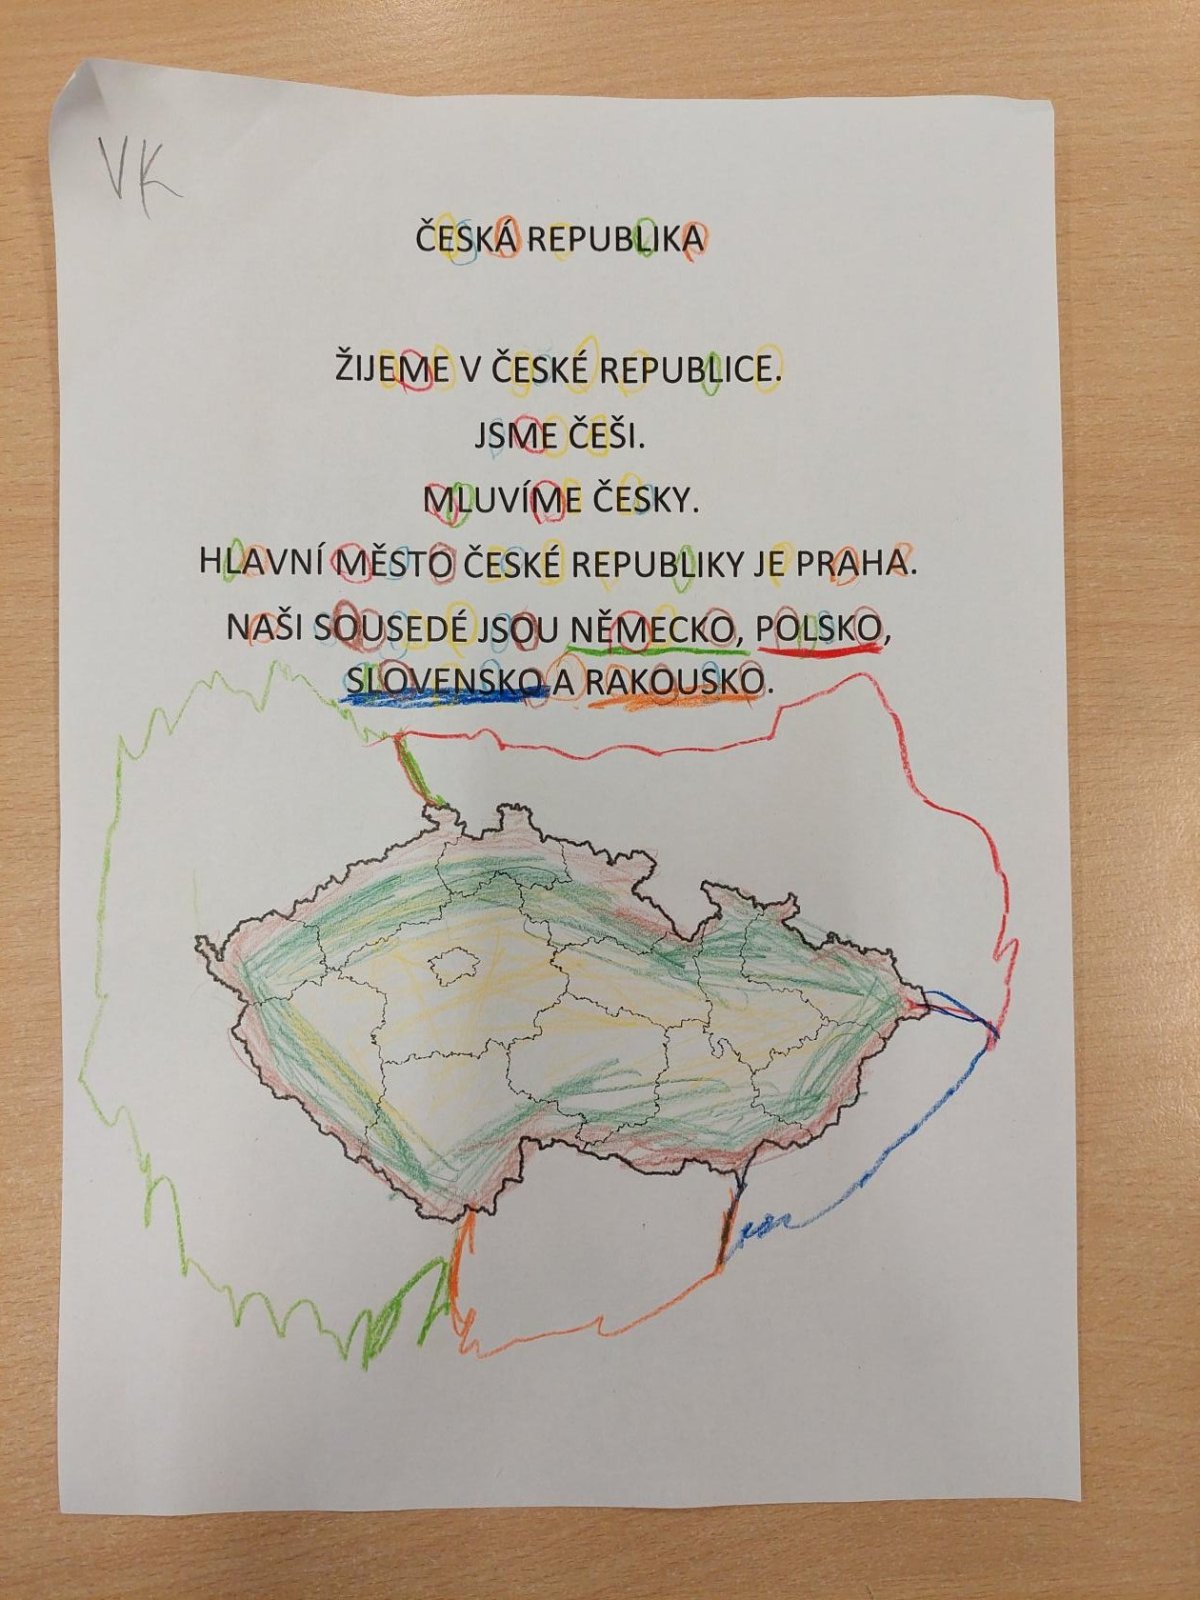 VK
ČESKÁ REPUBLIKA
ŽIJEME V ČESKÉ REPUBLICE.
JSME ČEŠI.
MLUVÍME ČESKY.
HLAVNÍ MĚSTO ČESKÉ REPUBLIKY JE PRAHA.
NAŠI SOUSEDÉ JSOU NĚMECKO, POLSKO,
SLOVENSKO A RAKOUSKO.